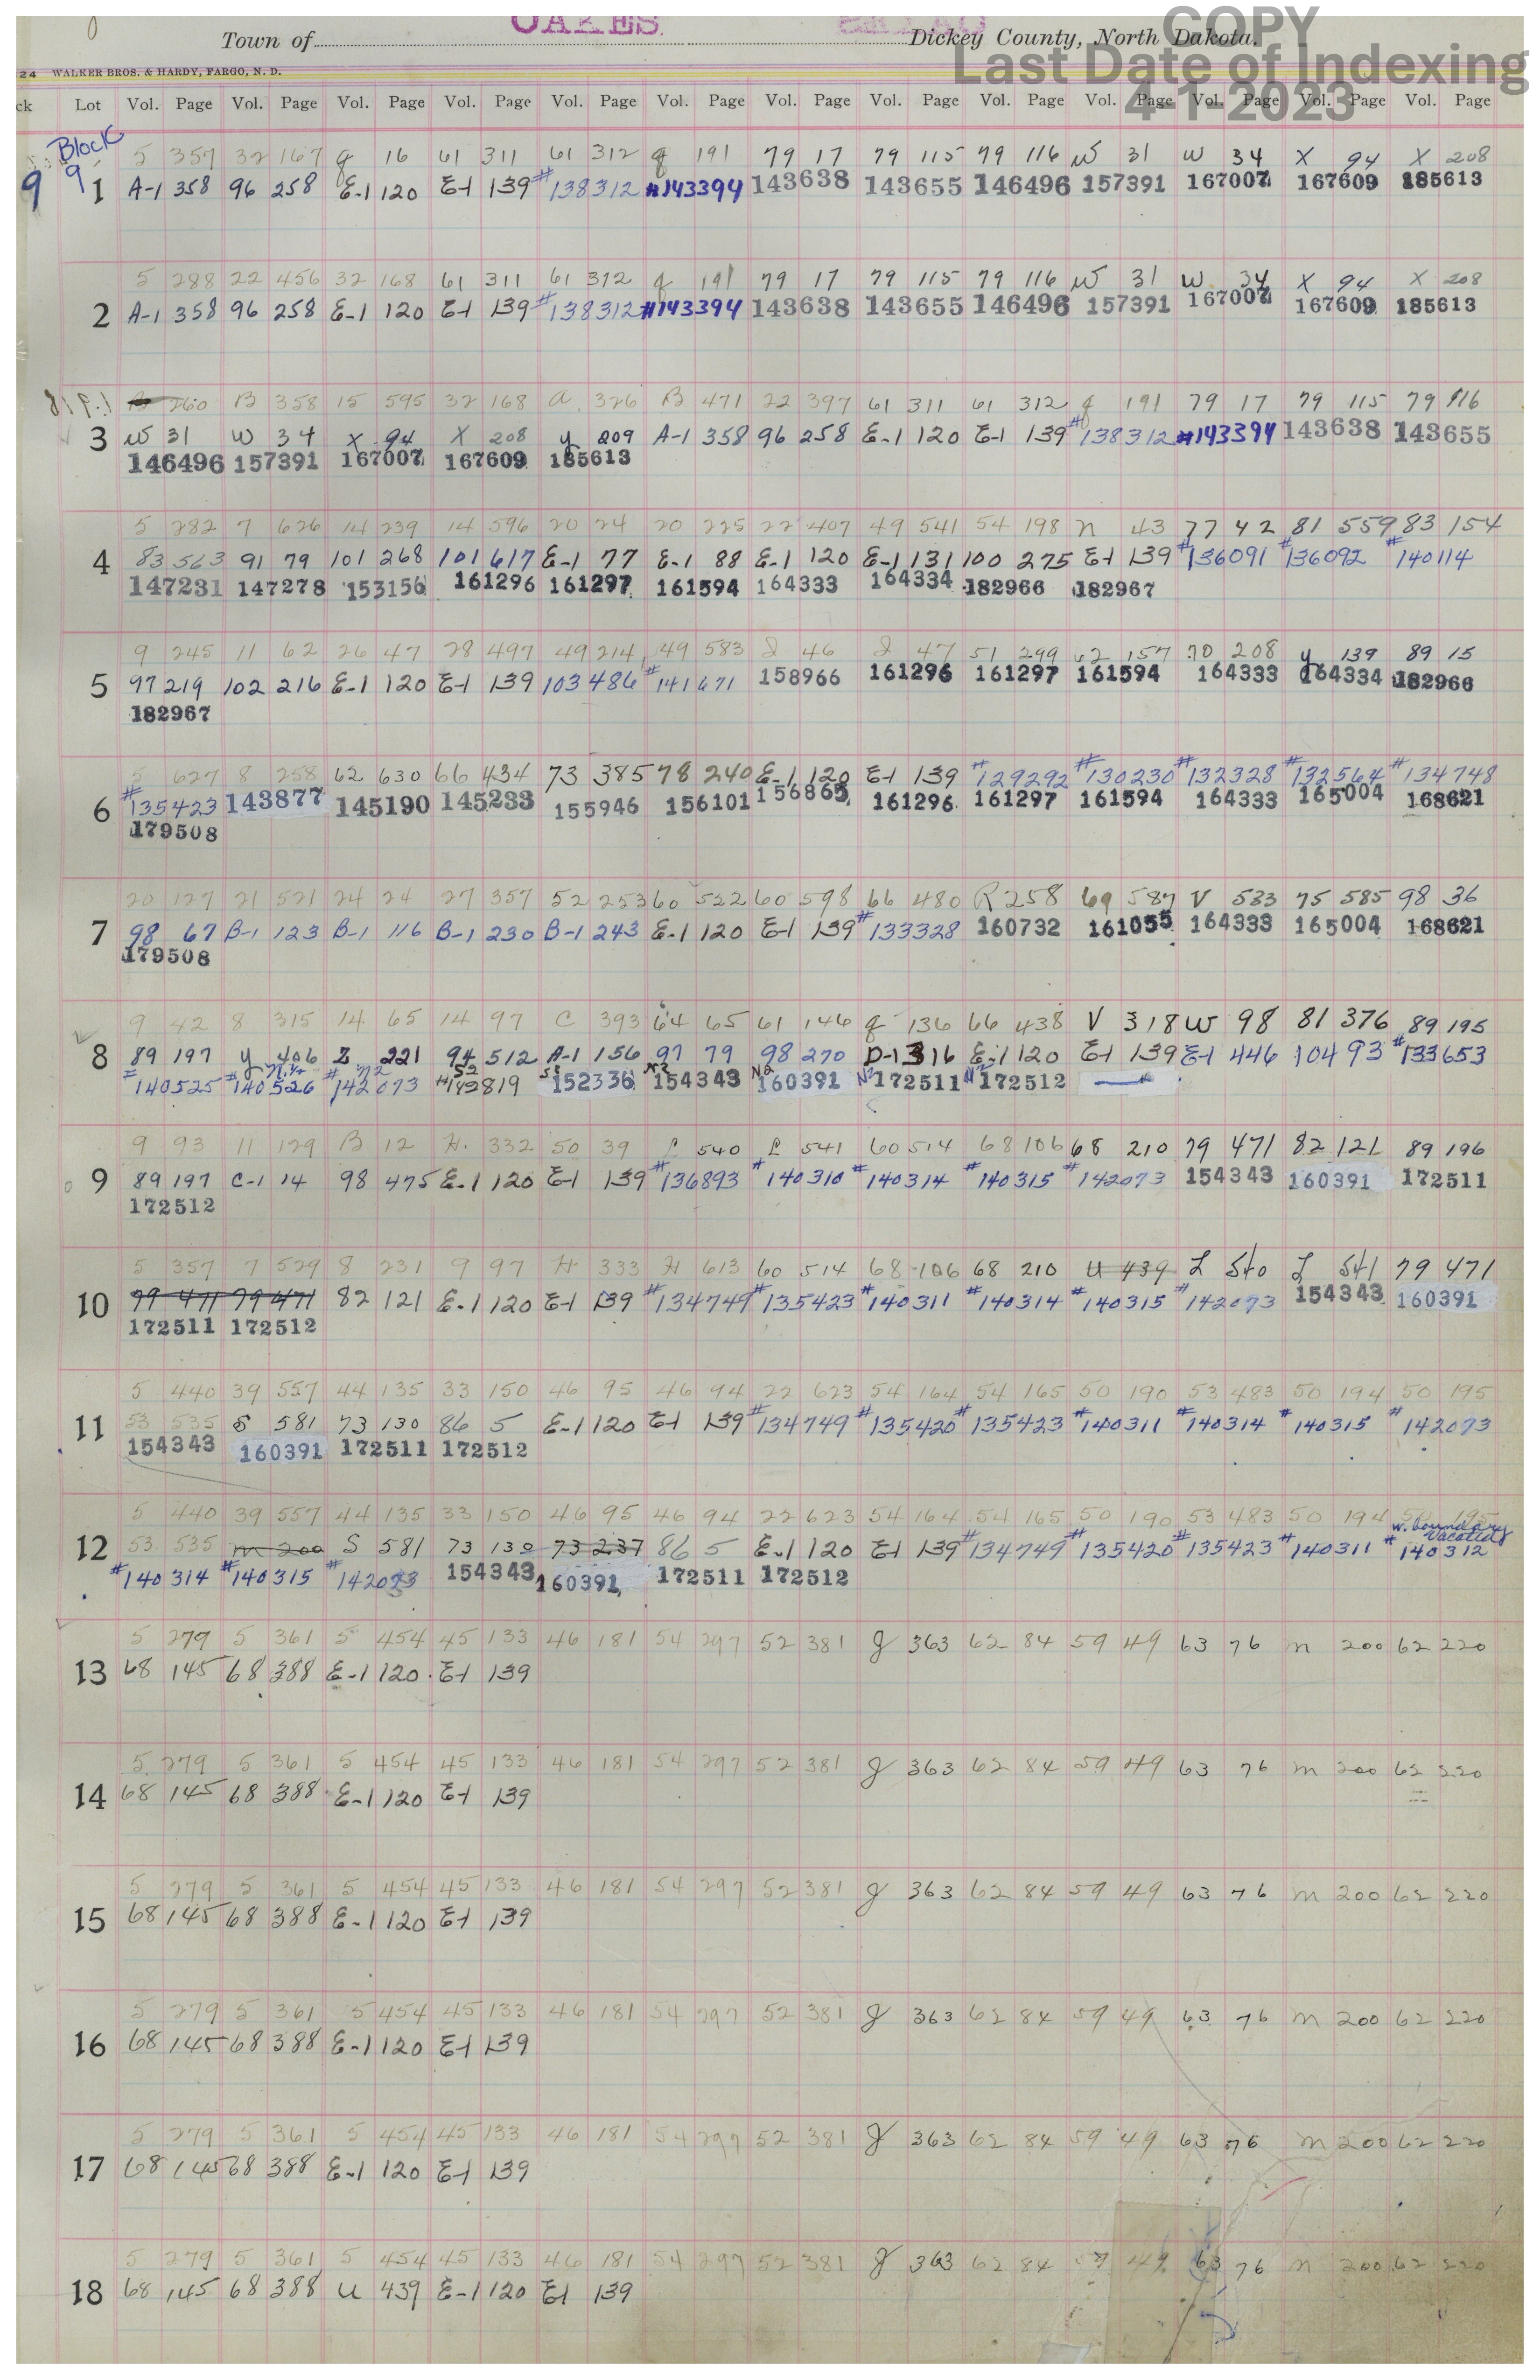 COPY
OAKES
Town of Dickey County, North Dakota.
Last Date of Indexing
24 WALKER BROS. & HARDY, FARGO, N. D.
4-1-2023
ck Lot Vol. Page Vol. Page Vol. Page Vol. Page Vol. Page Vol. Page Vol. Page Vol. Page Vol. Page Vol. Page Vol. Page Vol. Page Vol. Page
Block
9 9
5 357 32 167 g 16 61 311 61 312 g 191 79 17 79 115 79 116 W 31 W 34 X 94 X 208
1 A-1 358 96 258 E-1 120 E-1 139 #138312 #143394 143638 143655 146496 157391 167007 167609 185613
5 288 22 456 32 168 61 311 61 312 g 191 79 17 79 115 79 116 W 31 W 34 X 94 X 208
2 A-1 358 96 258 E-1 120 E-1 139 #138312 #143394 143638 143655 146496 157391 167007 167609 185613
260 B 358 15 595 32 168 a 326 B 471 22 397 61 311 61 312 g 191 79 17 79 115 79 116
3 W 31 W 34 X 94 X 208 y 209 A-1 358 96 258 E-1 120 E-1 139 #138312 #143394 143638 143655
146496 157391 167007 167609 185613
5 282 7 626 14 239 14 596 20 24 20 225 22 407 49 541 54 198 n 43 77 42 81 559 83 154
4 83 563 91 79 101 268 101 617 E-1 77 E-1 88 E-1 120 E-1 131 100 275 E-1 139 #136091 #136092 #140114
147231 147278 153156 161296 161297 161594 164333 164334 182966 182967
9 245 11 62 26 47 28 497 49 214 49 583 J 46 J 47 51 299 62 157 70 208 y 139 89 15
5 97 219 102 216 E-1 120 E-1 139 103 486 #141671 158966 161296 161297 161594 164333 164334 182966
182967
5 627 8 258 62 630 66 434 73 385 78 240 E-1 120 E-1 139 #129292 #130230 #132328 #132564 #134748
6 #135423 143877 145190 145233 155946 156101 156865 161296 161297 161594 164333 165004 168621
179508
20 127 21 521 24 24 27 357 52 253 60 522 60 598 66 480 R 258 69 587 V 533 75 585 98 36
7 98 67 B-1 123 B-1 116 B-1 230 B-1 243 E-1 120 E-1 139 #133328 160732 161055 164333 165004 168621
179508
9 42 8 315 14 65 14 97 C 393 64 65 61 146 g 136 66 438 V 318 W 98 81 376 89 195
8 89 197 y 406 Z 221 94 512 A-1 156 97 79 98 270 D-1 316 E-1 120 E-1 139 E-1 446 104 93 #133653
#140525 #140526 #142073 #142819 152336 154343 160391 172511 172512
9 93 11 129 B 12 H. 332 50 39 L 540 L 541 60 514 68 106 68 210 79 471 82 121 89 196
9 89 197 C-1 14 98 475 E-1 120 E-1 139 #136893 #140310 #140314 #140315 #142073 154343 160391 172511
172512
5 357 7 529 8 231 9 97 H 333 H 613 60 514 68 106 68 210 U 439 L 540 L 541 79 471
10 79 471 79 471 82 121 E-1 120 E-1 139 #134749 #135423 #140311 #140314 #140315 #142073 154343 160391
172511 172512
5 440 39 557 44 135 33 150 46 95 46 94 22 623 54 164 54 165 50 190 53 483 50 194 50 195
11 53 535 S 581 73 130 86 5 E-1 120 E-1 139 #134749 #135420 #135423 #140311 #140314 #140315 #142073
154343 160391 172511 172512
5 440 39 557 44 135 33 150 46 95 46 94 22 623 54 164 54 165 50 190 53 483 50 194 50 195
w. boundary vacated
12 53 535 m 200 S 581 73 130 73 237 86 5 E-1 120 E-1 139 #134749 #135420 #135423 #140311 #140312
#140314 #140315 #142073 154343 160391 172511 172512
5 279 5 361 5 454 45 133 46 181 54 297 52 381 g 363 62 84 59 49 63 76 m 200 62 220
13 68 145 68 388 E-1 120 E-1 139
5 279 5 361 5 454 45 133 46 181 54 297 52 381 g 363 62 84 59 49 63 76 m 200 62 220
14 68 145 68 388 E-1 120 E-1 139
5 279 5 361 5 454 45 133 46 181 54 297 52 381 g 363 62 84 59 49 63 76 m 200 62 220
15 68 145 68 388 E-1 120 E-1 139
5 279 5 361 5 454 45 133 46 181 54 297 52 381 g 363 62 84 59 49 63 76 m 200 62 220
16 68 145 68 388 E-1 120 E-1 139
5 279 5 361 5 454 45 133 46 181 54 297 52 381 g 363 62 84 59 49 63 76 m 200 62 220
17 68 145 68 388 E-1 120 E-1 139
5 279 5 361 5 454 45 133 46 181 54 297 52 381 g 363 62 84 59 49 63 76 m 200 62 220
18 68 145 68 388 U 439 E-1 120 E-1 139